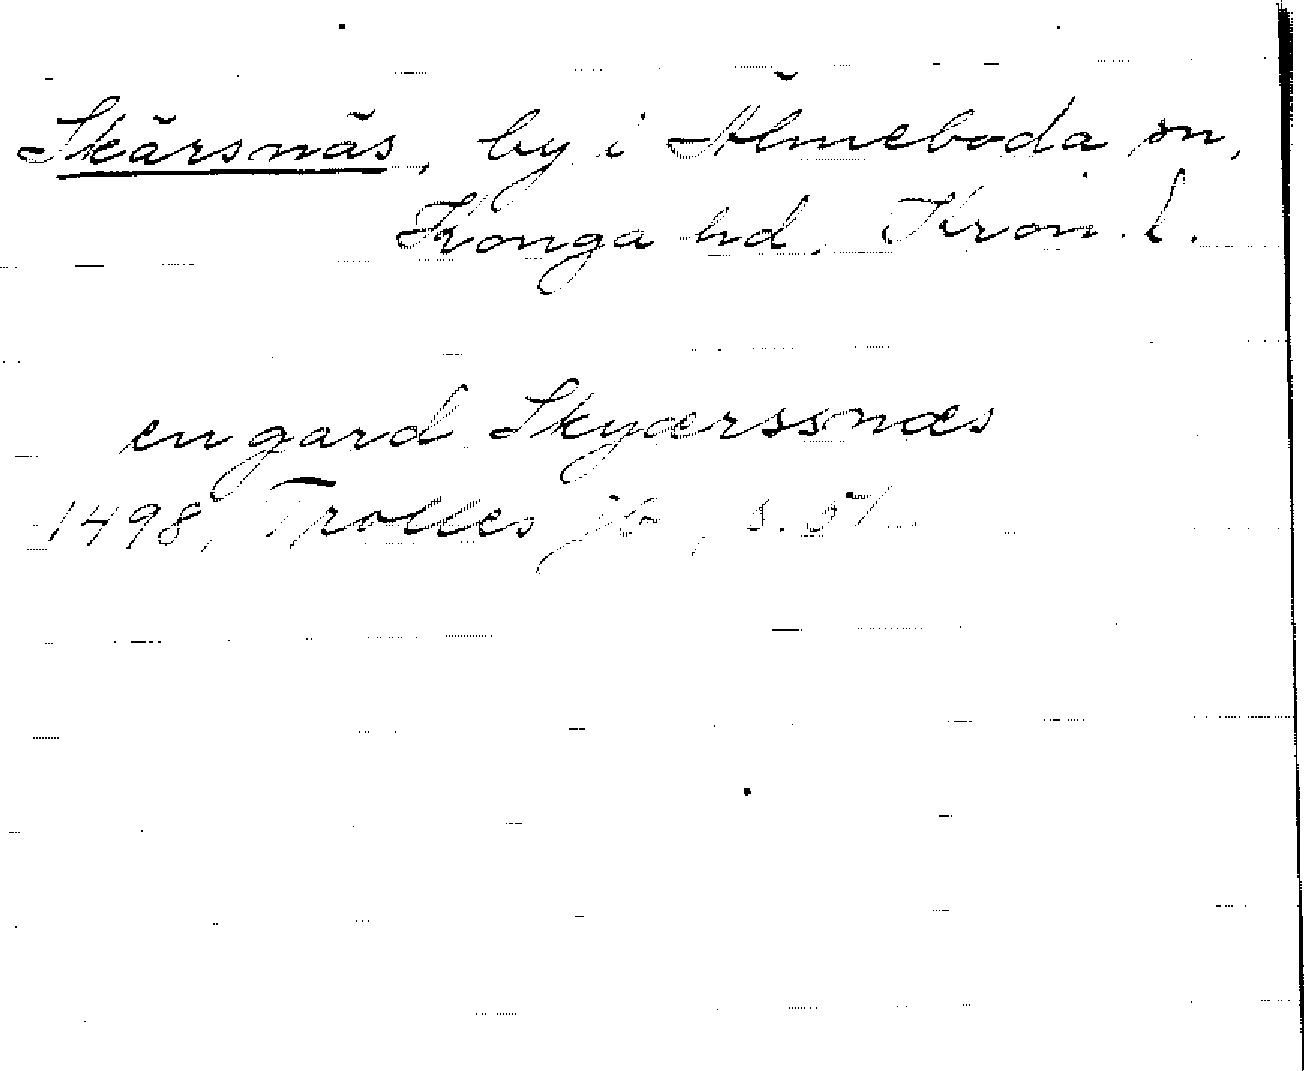 Skärsnäs, by i Älmeboda sn,
Konga hd, Kron. l.
en gard Skyærssnæs
1498, Trolles jb, s. 51